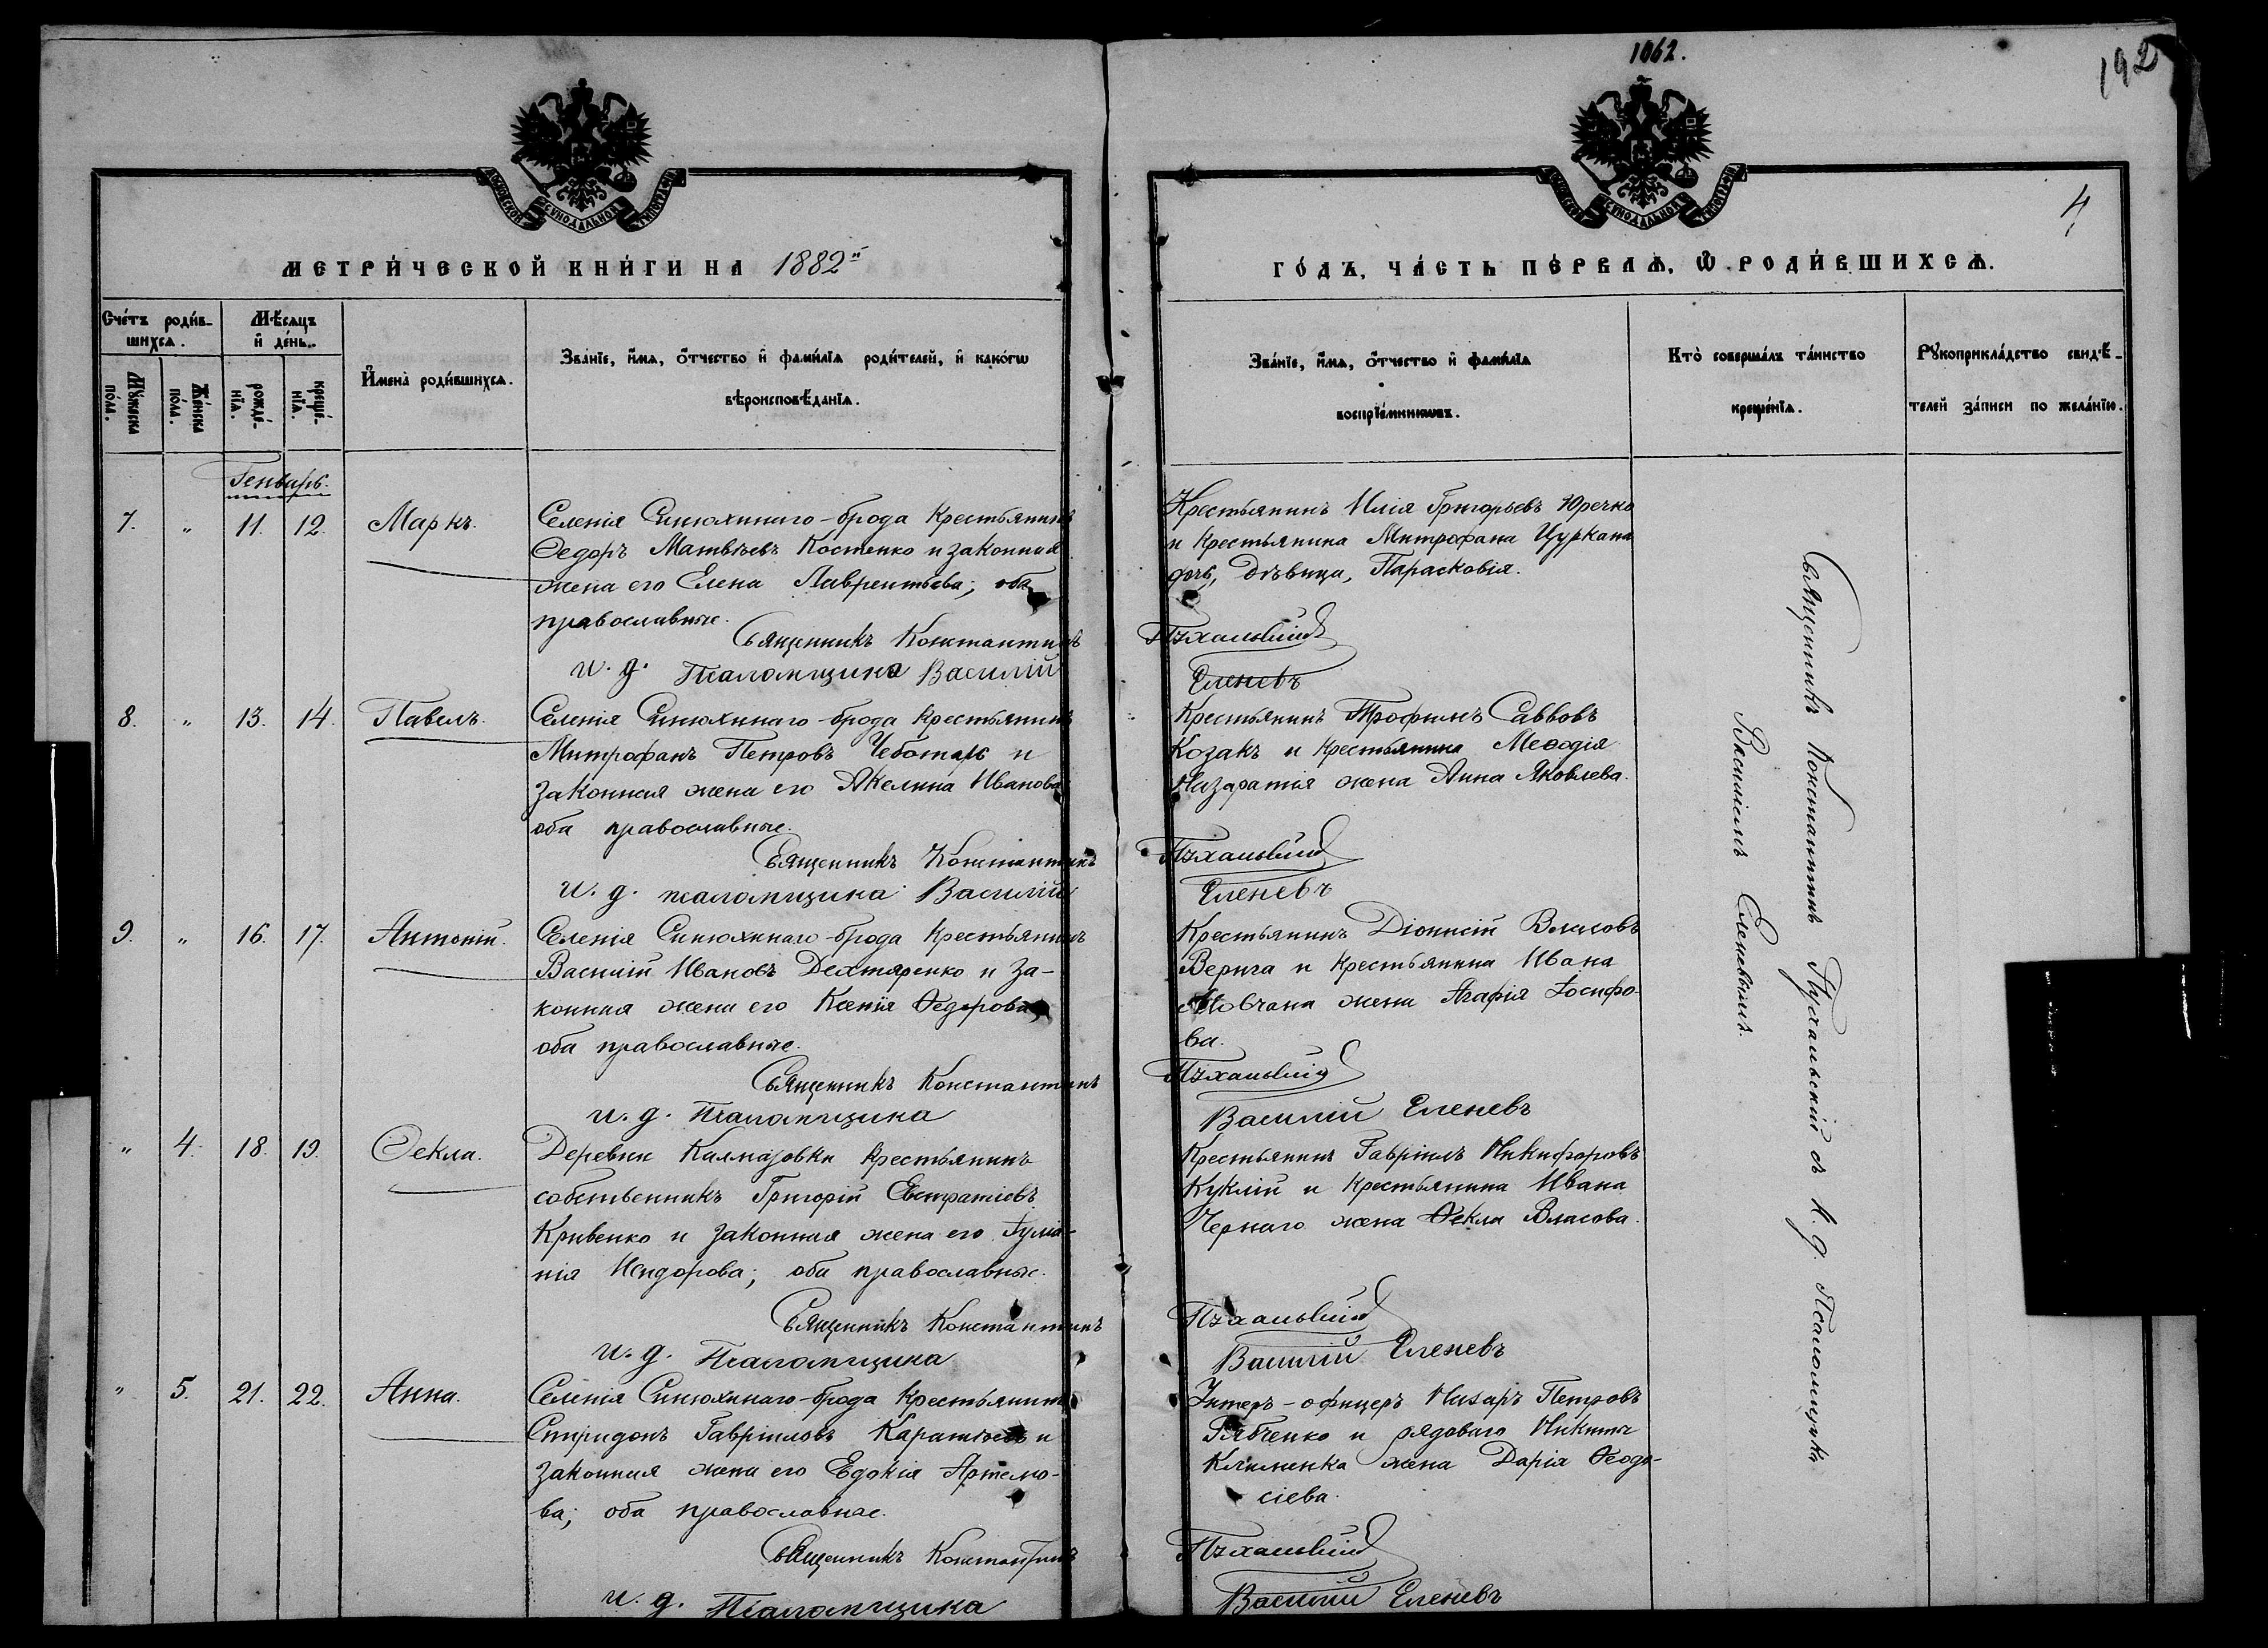 1062.
192
4
МОСКОВСКОЙ СѴНОДАЛЬНОЙ ТИПОГРАФІИ
МОСКОВСКОЙ СѴНОДАЛЬНОЙ ТИПОГРАФІИ
МЕТРИ́ЧЕСКОЙ КНИ́ГИ НА 1882й
ГО́ДЪ, ЧА́СТЬ ПЕ́РВАѦ, Ѿ РОДИ́ВШИХСѦ.
Сче́тъ роди́в-
шихсѧ.
Мѣ́сѧцъ
и҆ де́нь.
Мꙋ́жеска
по́ла.
Же́нска
по́ла.
рожде́-
нїѧ.
креще́-
нїѧ.
И҆мена̀ роди́вшихсѧ.
Зва́нїе, и҆́мѧ, ѻ҆́тчество и҆ фами́лїѧ роди́телей, и҆ како́гѡ
вѣроисповѣ́данїѧ.
Зва́нїе, и҆́мѧ, ѻ҆́тчество и҆ фами́лїѧ
воспрїе́мникѡвъ.
Кто̀ соверша́лъ та́инство
креще́нїѧ.
Рꙋкоприкла́дство свидѣ́-
телей за́писи по жела́нїю.
Генварь.
7. " 11. 12. Маркъ.
Селенія Синюхинаго-брода Крестьянинъ
Ѳедоръ Матвѣевъ Костенко и законная
жена его Елена Лаврентьева; оба
православные.
Священникъ Константинъ
и. д. Псаломщика Василій
Крестьянинъ Илія Григорьевъ Юречко
и Крестьянина Митрофана Цуркана
дочь, дѣвица, Парасковія.
Пухальскій
Еленевъ
8. " 13. 14. Павелъ.
Селенія Синюхинаго-брода Крестьянинъ
Митрофанъ Петровъ Чеботарь и
законная жена его Акелина Иванова
оба православные.
Священникъ Константинъ
и. д. псаломщика Василій
Крестьянинъ Трофимъ Савковъ
Козакъ и Крестьянина Меѳодія
Назаратія жена Анна Яковлева.
Пухальскій
Еленевъ
9. " 16. 17. Антоній.
Селенія Синюхинаго-брода Крестьянинъ
Василій Ивановъ Дехтяренко и за-
конная жена его Ксенія Ѳедорова
оба православные.
Священникъ Константинъ
и. д. Псаломщика
Крестьянинъ Діонисій Власовъ
Верига и Крестьянина Ивана
Мовчана жена Агафія Іосифо-
ва.
Пухальскій
Василій Еленевъ
" 4. 18. 19. Ѳекла.
Деревни Калмазовки Крестьянинъ
собственникъ Григорій Евстратіевъ
Кривенко и законная жена его Іулiа-
нія Исидорова; оба православные.
Священникъ Константинъ
и. д. Псаломщика
Крестьянинъ Гавріилъ Никифоровъ
Куклій и Крестьянина Ивана
Чернаго жена Ѳекла Власова.
Пухальскій
Василій Еленевъ
" 5. 21. 22. Анна.
Селенія Синюхинаго-брода Крестьянинъ
Спиридонъ Гавріиловъ и
законная жена его Евдокія Артемо-
ва; оба православные.
Священникъ Константинъ
и. д. Псаломщика
Унтеръ-офицеръ Назаръ Петровъ
Рябченко и рядоваго Никиты
Клименка жена Дарія Ѳеодо-
сіева.
Пухальскій
Василій Еленевъ
Священникъ Константинъ Пухальскій съ и. д. Псаломщика
Василіемъ Еленевымъ.